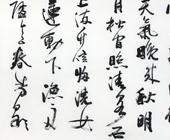 天氣晚来秋明
月松間照清泉石
上流竹喧歸浣女
蓮動下漁舟
隨意春芳歇